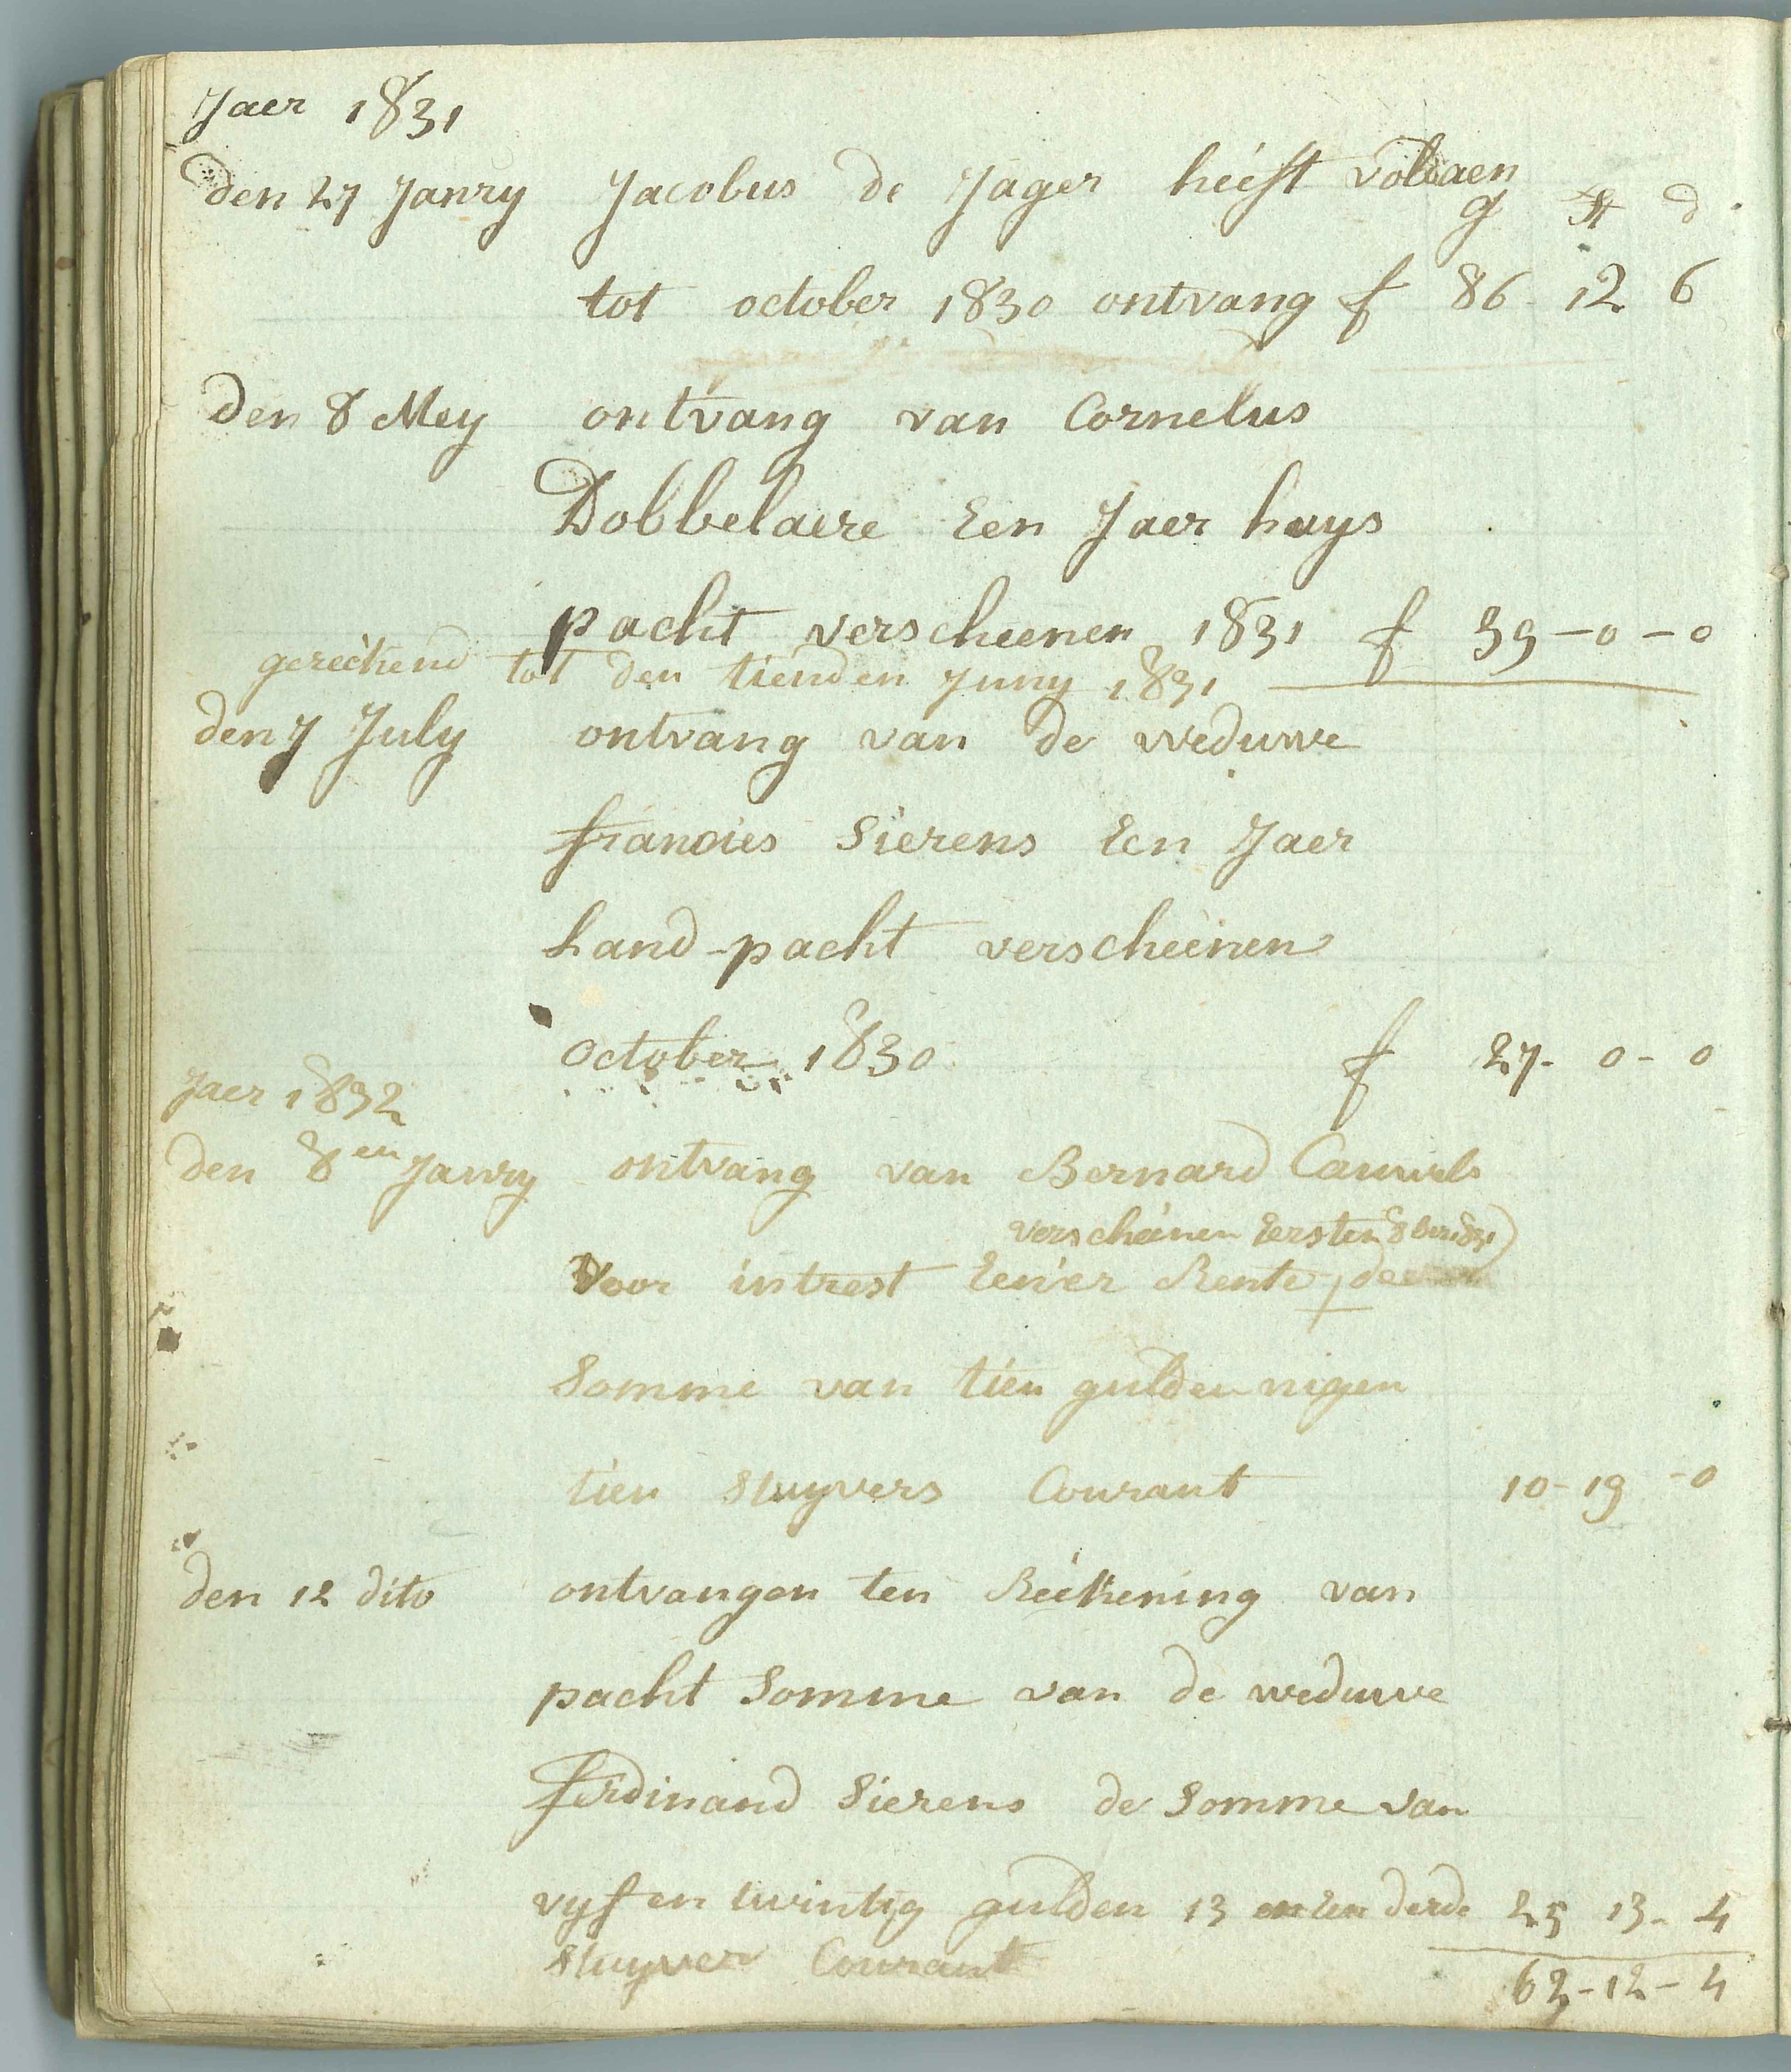 Jaer 1831
den 27 Janry Jacobus de Jager heeft voldaen
g st d
tot october 1830 ontvang f 86 - 12 6
Den 8 Mey ontvang van Cornelus
Dobbelaere Een Jaer huys
pacht verscheenen 1831 f 39 - 0 - 0
gereekend tot den tienden Juny 1831
den 7 July ontvang van de weduwe
francies Sierens Een Jaer
Land-pacht verscheenen
october 1830 f 27 - 0 - 0
Jaer 1832
den 8en Janry ontvang van Bernard Cauwels
verscheenen Eersten 8ber 1831
Voor intrest Eener Rente, de
Somme van tien gulden nigen
tien stuyvers Courant 10 - 19 - 0
den 12 dito ontvangen ten Reekening van
pacht Somme van de weduwe
ferdinand Sierens de Somme van
vyf en twintig gulden 13 en Een derde 25 13 - 4
stuyver Courant
62 - 12 - 4